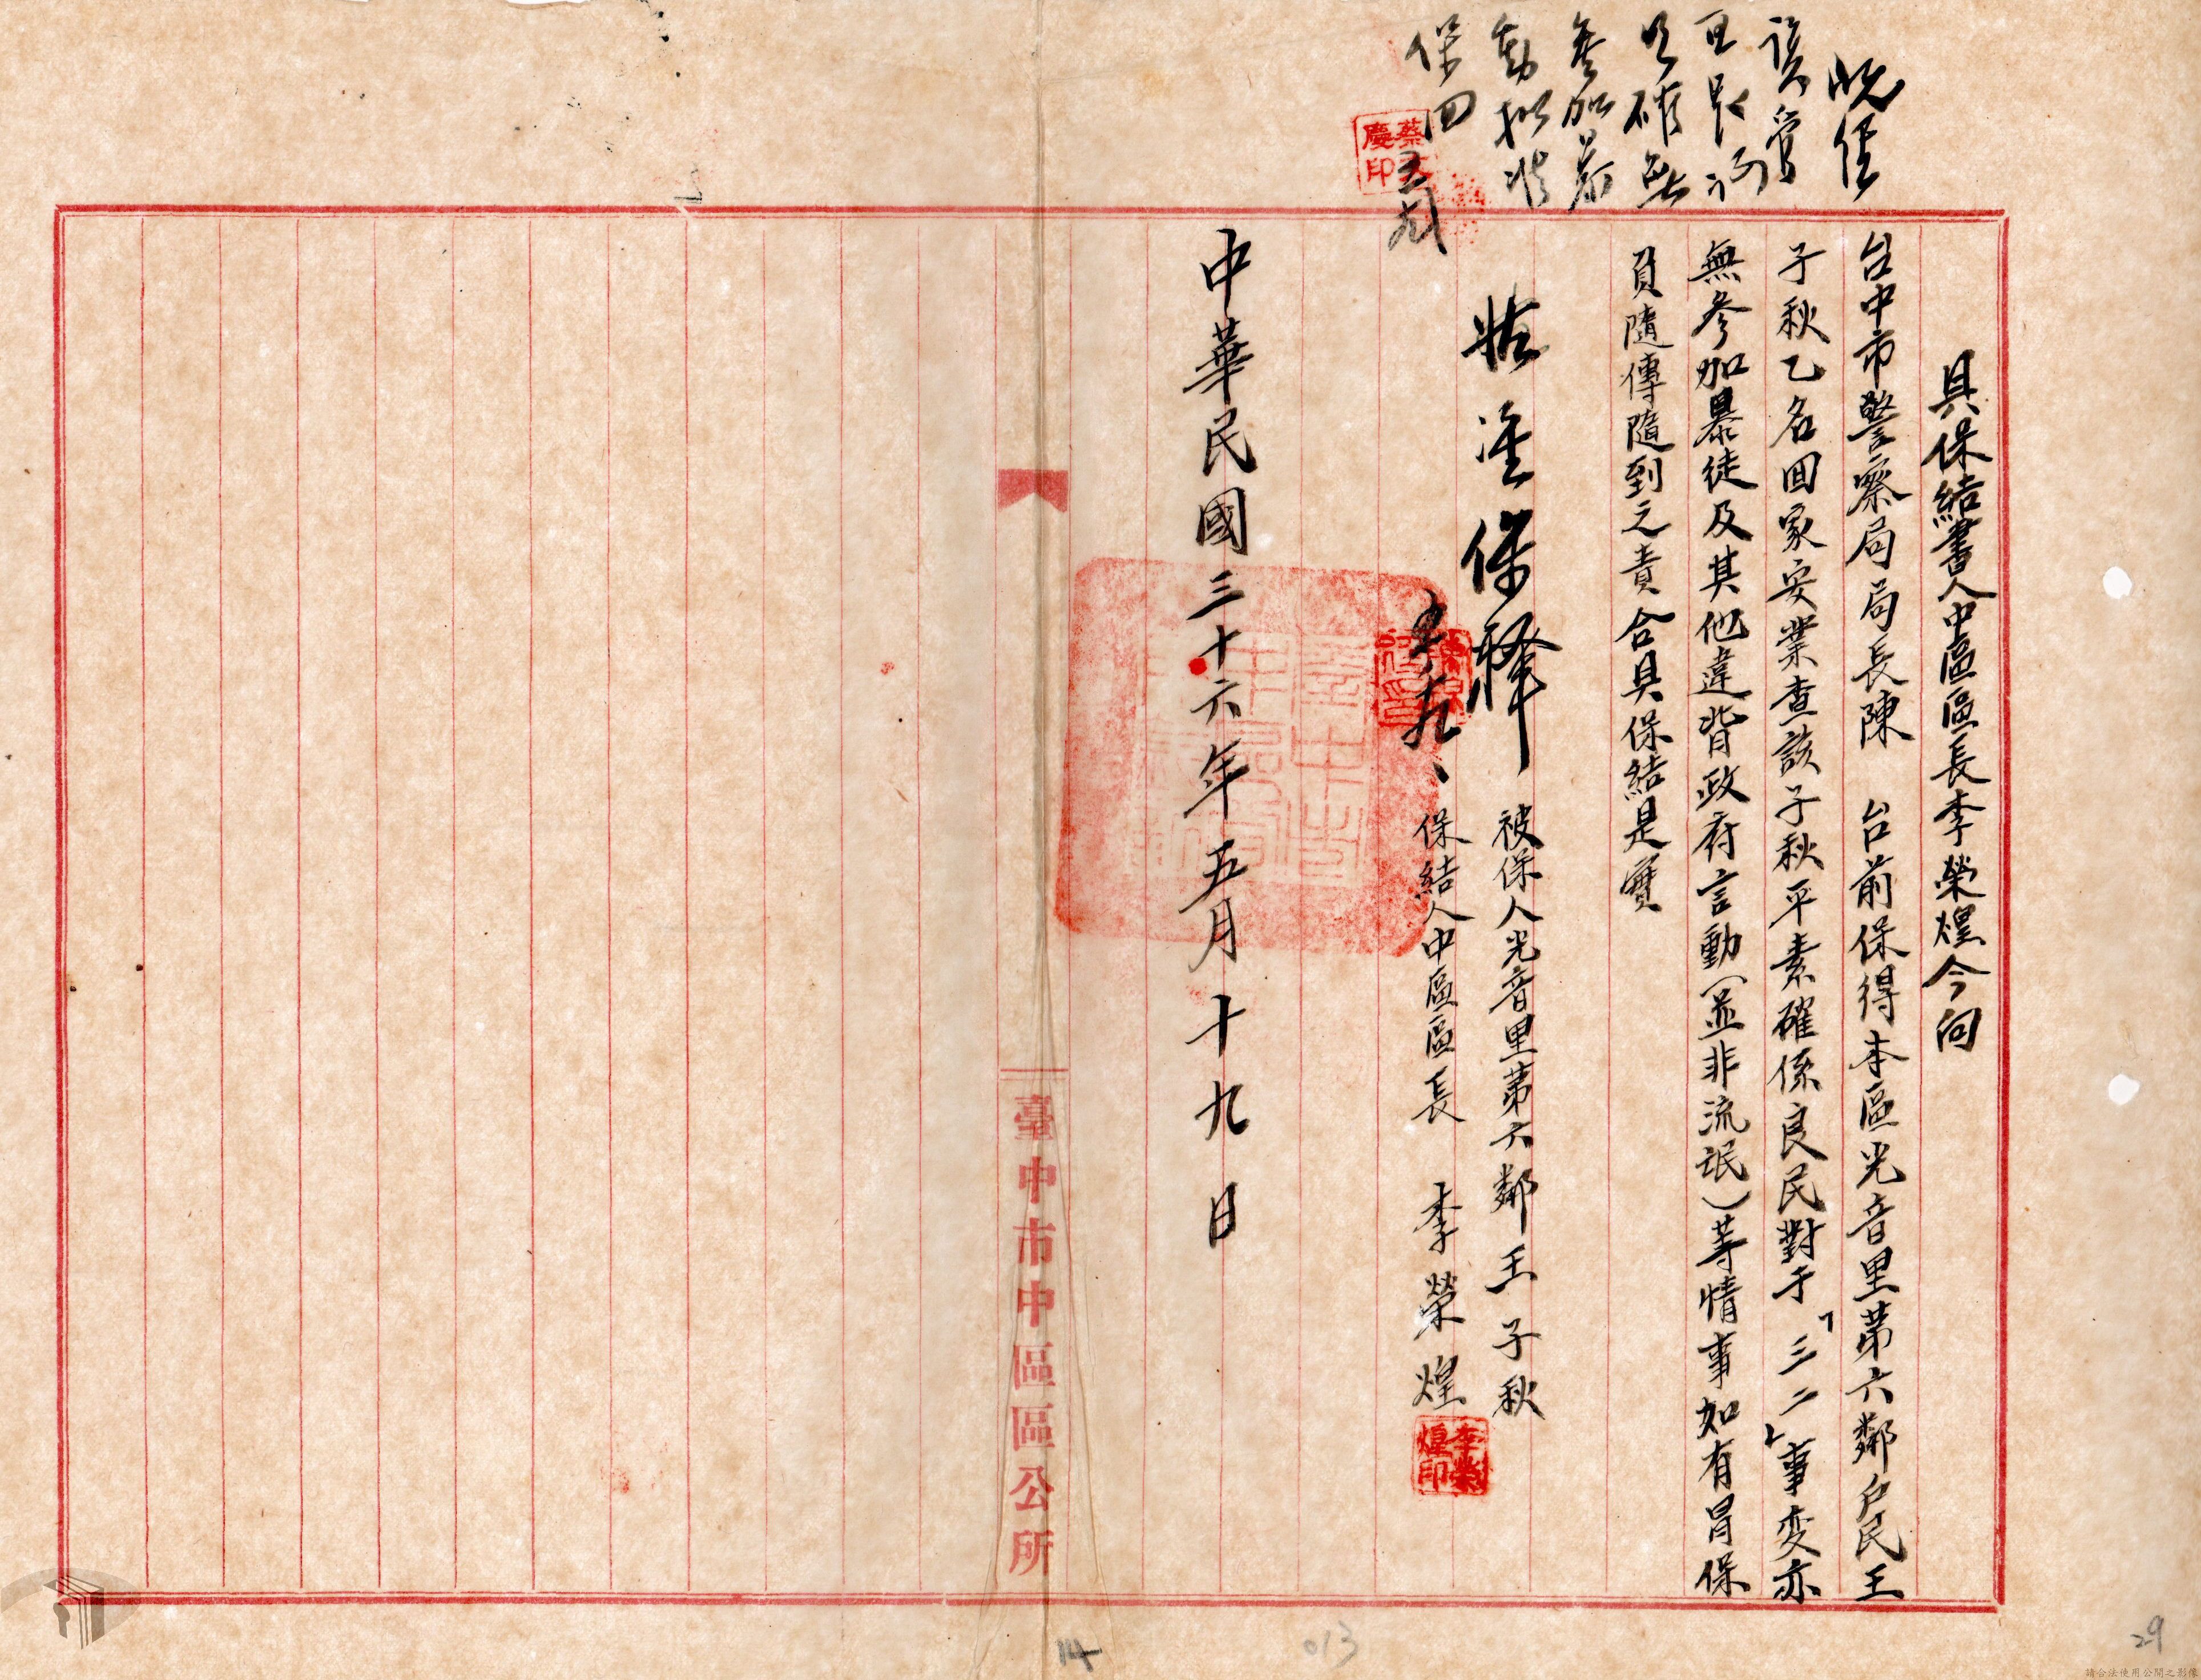 既経
該管
里鄰
確無
參加暴
動擬准
保回
蔡
慶印
具保結書人中區區長李榮煌今向
台中市警察局局長陳　台前保得本區光音里第六鄰戶民王
子秋乙名回家安業查該子秋平素確係良民對于「三二」事変亦
無參加暴徒及其他違背政府言動（並非流氓）等情事如有冒保
員隨傳隨到之責合具保結是實
准保釋
被保人光音里第六鄰王子秋
保結人中區區長　李榮煌
李榮煌印
中華民國三十六年五月十九日
臺中市中區區公所
14
013
29
請合法使用公開之影像